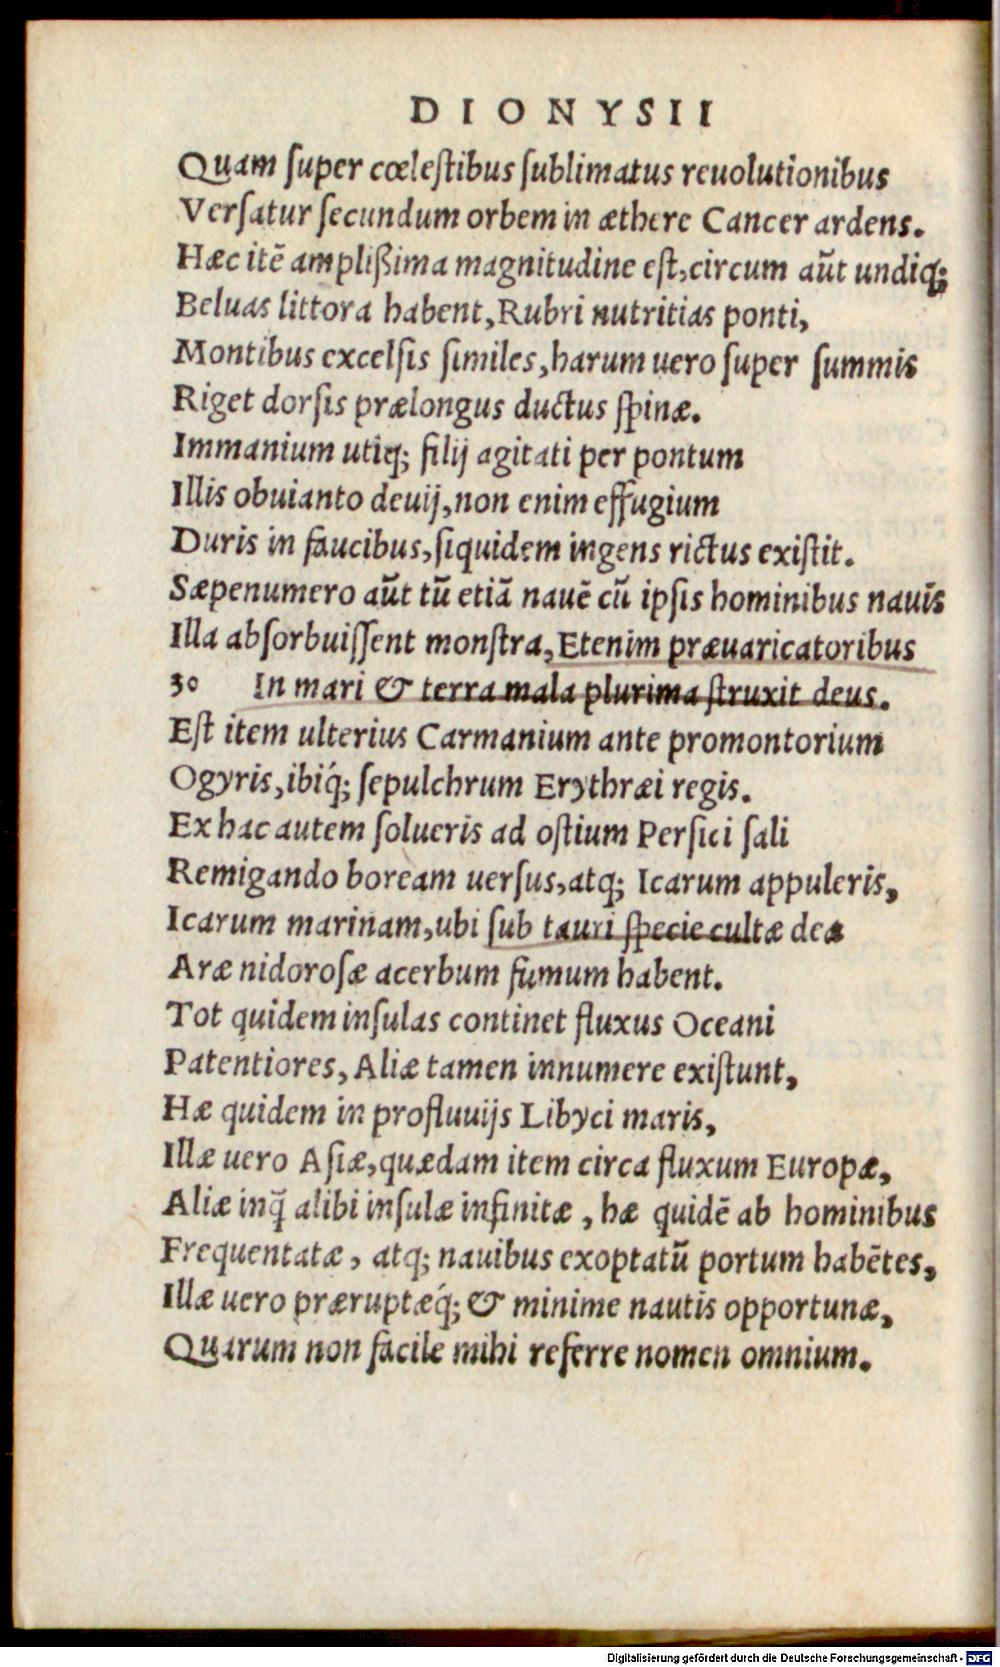 DIONYSII
Quam ſuper cœleſtibus ſublimatus reuolutionibus
Verſatur ſecundum orbem in æthere Cancer ardens.
Hæc itē ampliſſima magnitudine eſt, circum aūt undiq;
Beluas littora habent, Rubri nutritias ponti,
Montibus excelſis ſimiles, harum uero ſuper ſummis
Riget dorſis prælongus ductus ſpinæ.
Immanium utiq; filij agitati per pontum
Illis obuianto deuij, non enim effugium
Duris in faucibus, ſiquidem ingens rictus exiſtit.
Sæpenumero aūt tū etiā nauē cū ipſis hominibus nauis
Illa abſorbuiſſent monſtra, Etenim præuaricatoribus
30 In mari & terra mala plurima ſtruxit deus.
Eſt item ulterius Carmanium ante promontorium
Ogyris, ibiq́; ſepulchrum Erythræi regis.
Ex hac autem ſolueris ad oſtium Perſici ſali
Remigando boream uerſus, atq; Icarum appuleris,
Icarum marinam, ubi ſub tauri ſpecie cultæ deæ
Aræ nidoroſæ acerbum fumum habent.
Tot quidem inſulas continet fluxus Oceani
Patentiores, Aliæ tamen innumere exiſtunt,
Hæ quidem in profluuijs Libyci maris,
Illæ uero Aſiæ, quædam item circa fluxum Europæ,
Aliæ inq̃ alibi inſulæ infinitæ, hæ quidē ab hominibus
Frequentatæ, atq; nauibus exoptatū portum habētes,
Illæ uero præruptæq́; & minime nautis opportunæ,
Quarum non facile mihi referre nomen omnium.
Digitalisierung gefördert durch die Deutsche Forschungsgemeinschaft - DFG